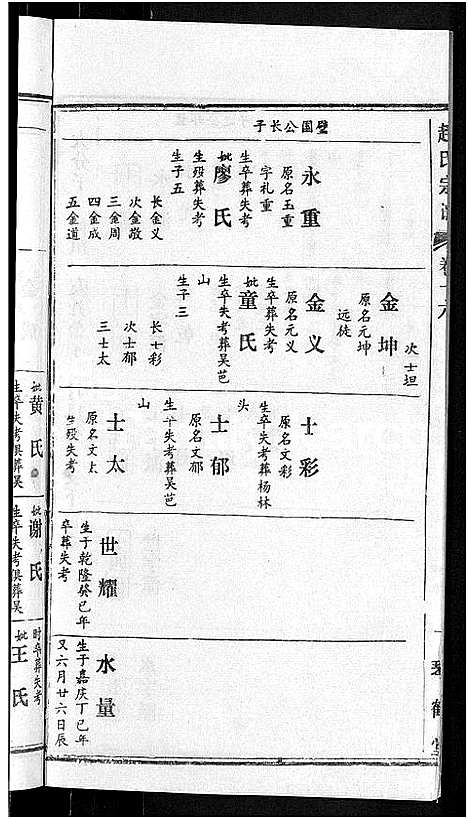 赵氏宗谱
卷十六
琴鹤堂
璧国公长子
永重
原名玉重
字礼重
生卒葬失考
妣廖氏
生殁葬失考
生子五
长金义
次金敬
三金周
四金成
五金道
次士坦
金坤
原名元坤
远徒
金义
原名元义
生卒葬失考
妣童氏
生卒失考葬吴芭
山
生子三
长士彩
次士郁
三士太
士彩
原名文彩
生卒失考葬杨林
头
士郁
原名文郁
生卒失考葬吴芭
山
士太
原名文太
生殁失考
世耀
生于乾隆癸巳年
卒葬失考
水量
生于嘉庆丁巳年
又六月廿六日辰
妣黄氏
生卒失考俱葬吴
妣谢氏
生卒失考俱葬吴
时卒葬失考
妣王氏